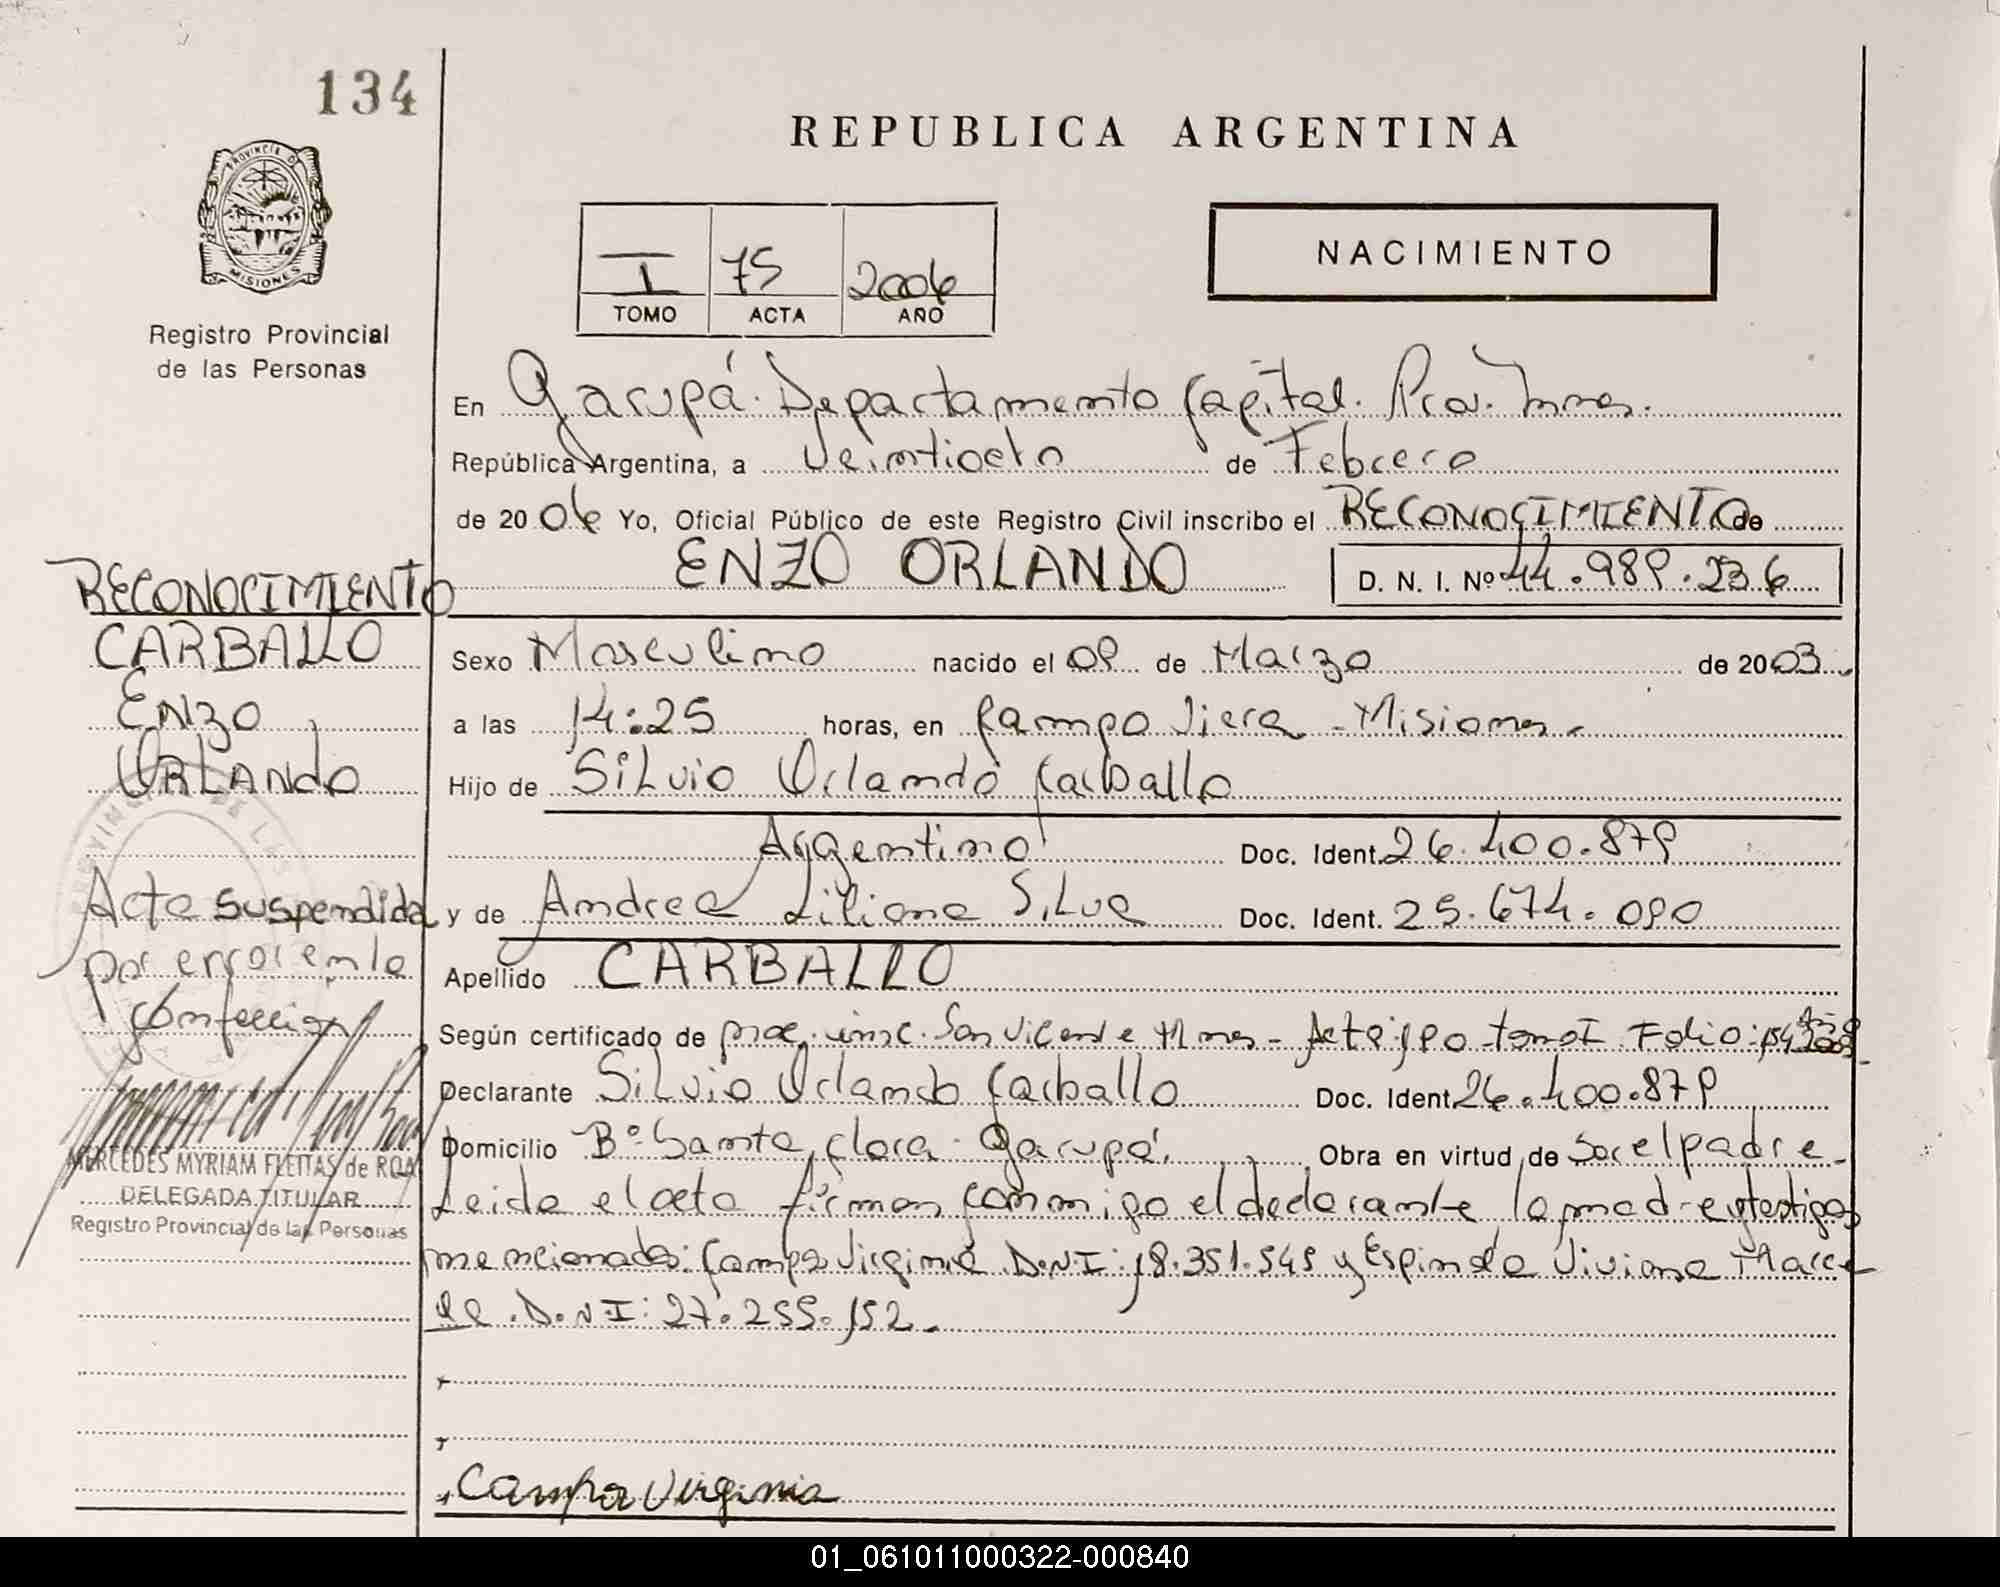 134
REPUBLICA ARGENTINA
PROVINCIA DE
MISIONES
Registro Provincial
de las Personas
I 75 2006
TOMO ACTA AÑO
NACIMIENTO
En Garupá. Departamento Capital. Prov. Mnes.
República Argentina, a Veintiocho de Febrero
de 2006 Yo, Oficial Público de este Registro Civil inscribo el RECONOCIMIENTO de
ENZO ORLANDO D. N. I. Nº 44.989.236
RECONOCIMIENTO
CARBALLO
Enzo
Orlando
Sexo Masculino nacido el 09 de Marzo de 2003
a las 14:25 horas, en Campo Viera - Misiones -
Hijo de Silvio Orlando Carballo
Argentino Doc. Ident. 26.400.879
y de Andrea Liliana Silva Doc. Ident. 25.674.090
Acta suspendida
por error en la
confeccion
Apellido CARBALLO
Según certificado de San Vicente Mnes - Acta: tomo I Folio:
Declarante Silvio Orlando Carballo Doc. Ident. 26.400.879
Domicilio Bº Santa Clara - Garupá. Obra en virtud de Ser el padre -
Leida el acta firman conmigo el declarante la madre y testigos
mencionados: Campos Virginia D.N.I: 18.351.545 y Espindola Viviana Marce
la . D.N.I: 27.255.152 -
MERCEDES MYRIAM FLEITAS de ROA
DELEGADA TITULAR
Registro Provincial de las Personas
Campos Virginia
01_061011000322-000840